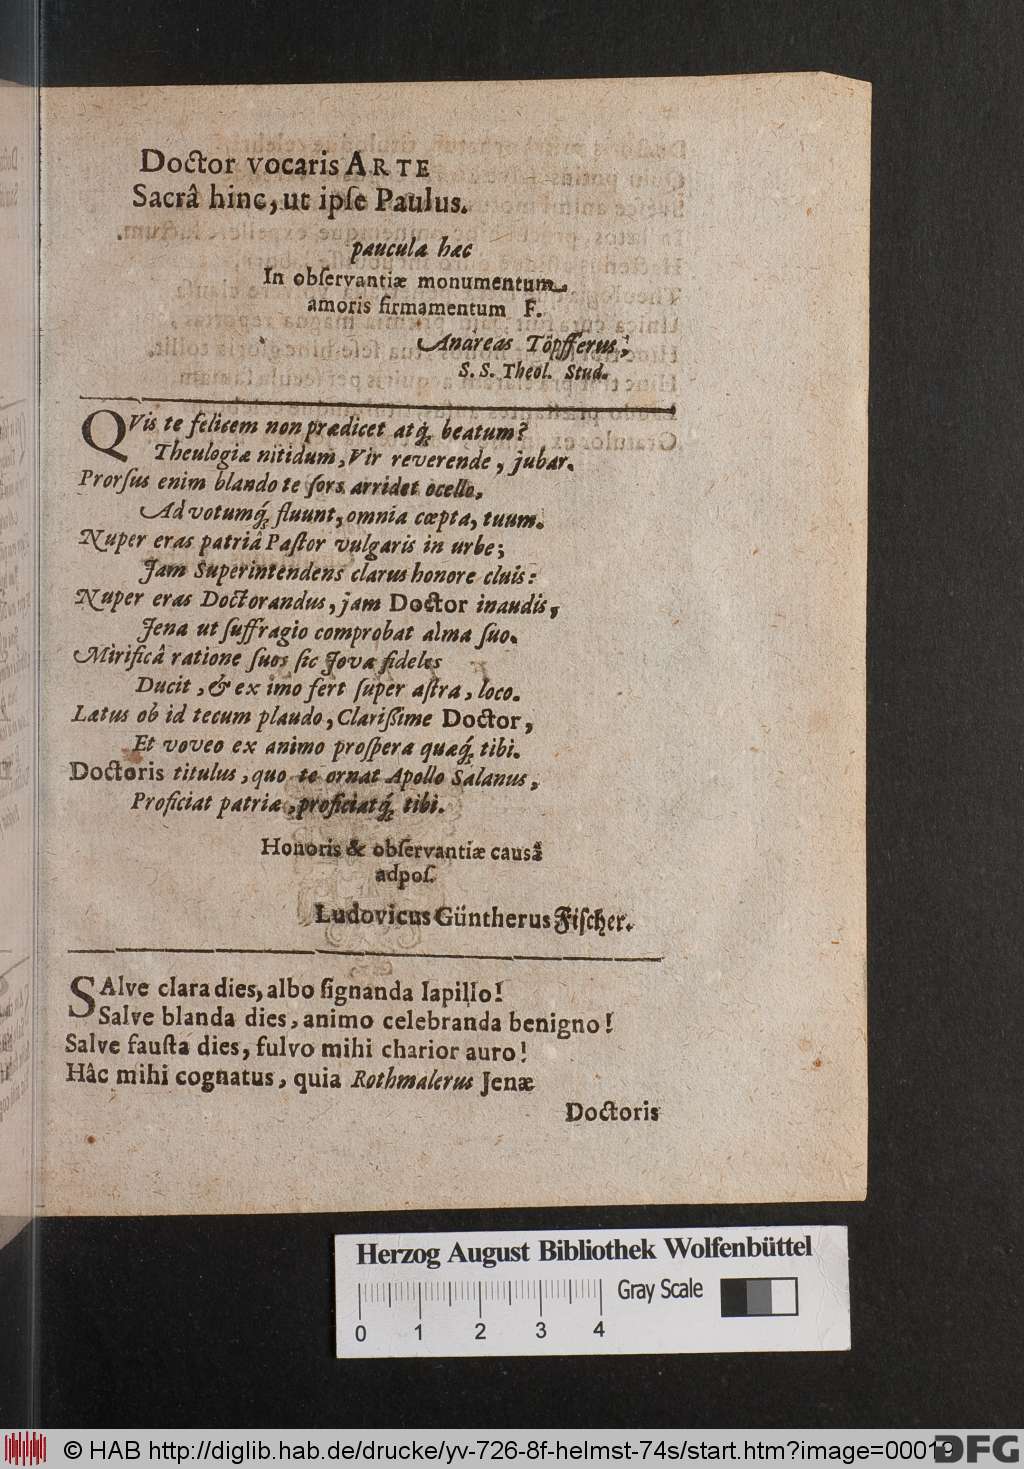 Doctor vocaris ARTE
Sacrâ hinc, ut ipſe Paulus.
paucula hæc
In obſervantiæ monumentum,
amoris firmamentum F.
Andreas Töpfferus,
S. S. Theol. Stud.
QVis te felicem non prædicet atq́; beatum?
Theologiæ nitidum, Vir reverende, jubar.
Prorſus enim blando te ſors arridet ocello,
Ad votumq́; fluunt, omnia cœpta, tuum.
Nuper eras patriâ Paſtor vulgaris in urbe;
Jam Superintendens clarus honore cluis:
Nuper eras Doctorandus, jam Doctor inaudis,
Jena ut ſuffragio comprobat alma ſuo.
Mirificâ ratione ſuos ſic Jova fideles
Ducit, & ex imo fert ſuper aſtra, loco.
Lætus ob id tecum plaudo, Clariſſime Doctor,
Et voveo ex animo proſpera quæq́; tibi.
Doctoris titulus, quo te ornat Apollo Salanus,
Proficiat patriæ, proficiatq́; tibi.
Honoris & obſervantiæ causâ
adpoſ.
Ludovicus Güntherus Fiſcher.
SAlve clara dies, albo ſignanda lapillo!
Salve blanda dies, animo celebranda benigno!
Salve fauſta dies, fulvo mihi charior auro!
Hâc mihi cognatus, quia Rothmalerus Jenæ
Doctoris
Herzog August Bibliothek Wolfenbüttel
Gray Scale
0 1 2 3 4
© HAB http://diglib.hab.de/drucke/yv-726-8f-helmst-74s/start.htm?image=00019
DFG